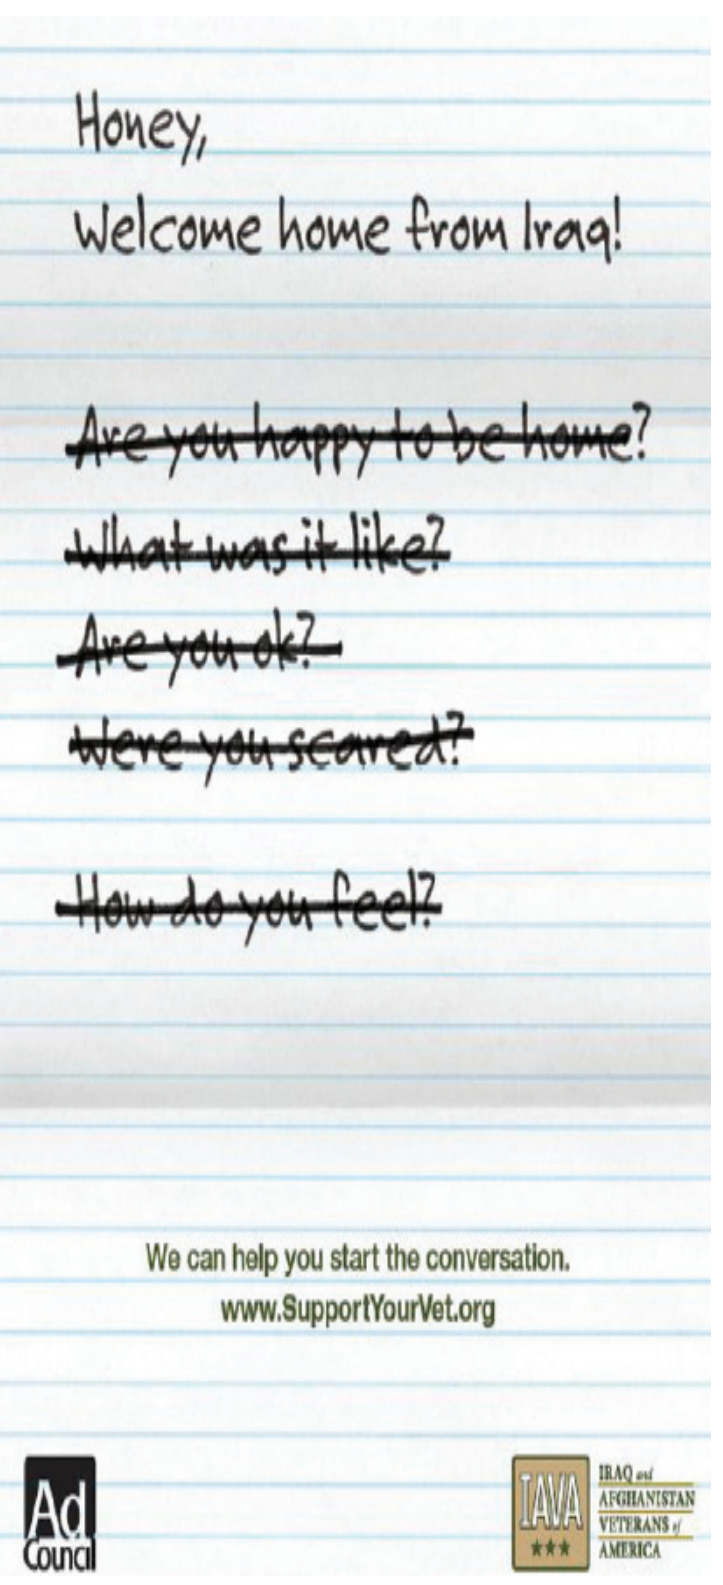 Honey,
Welcome home from Iraq!
Are you happy to be home?
What was it like?
Are you ok?
Were you scared?
How do you feel?
We can help you start the conversation.
www.SupportYourVet.org
Ad
Council
IAVA
IRAQ and
AFGHANISTAN
VETERANS of
AMERICA